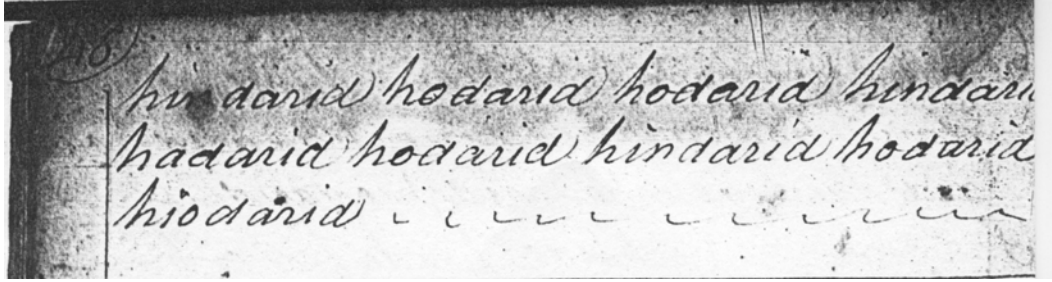 hindarid hodarid hodarid hindari
hadarid hodarid hindarid hodarid
hiodarid